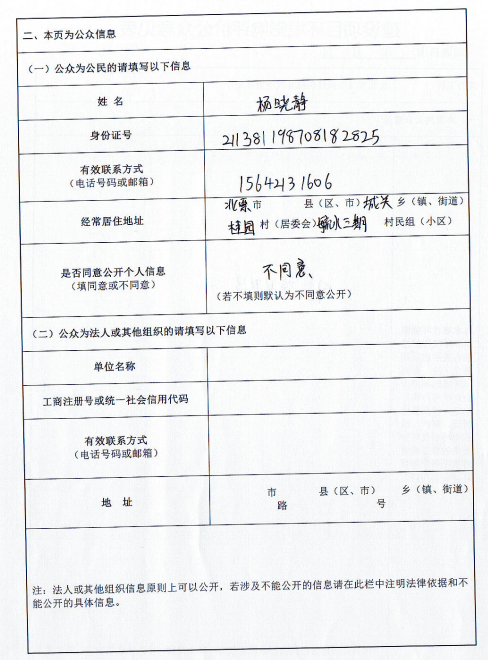 二、本页为公众信息
（一）公众为公民的请填写以下信息
姓 名 杨晓静
身份证号 211381198708182825
有效联系方式
（电话号码或邮箱） 15642131606
经常居住地址 北票市 县（区、市）城关乡（镇、街道）
桂园村（居委会）丽水三期 村民组（小区）
是否同意公开个人信息
（填同意或不同意） 不同意
（若不填则默认为不同意公开）
（二）公众为法人或其他组织的请填写以下信息
单位名称
工商注册号或统一社会信用代码
有效联系方式
（电话号码或邮箱）
地 址 市 县（区、市） 乡（镇、街道）
路 号
注：法人或其他组织信息原则上可以公开，若涉及不能公开的信息请在此栏中注明法律依据和不
能公开的具体信息。